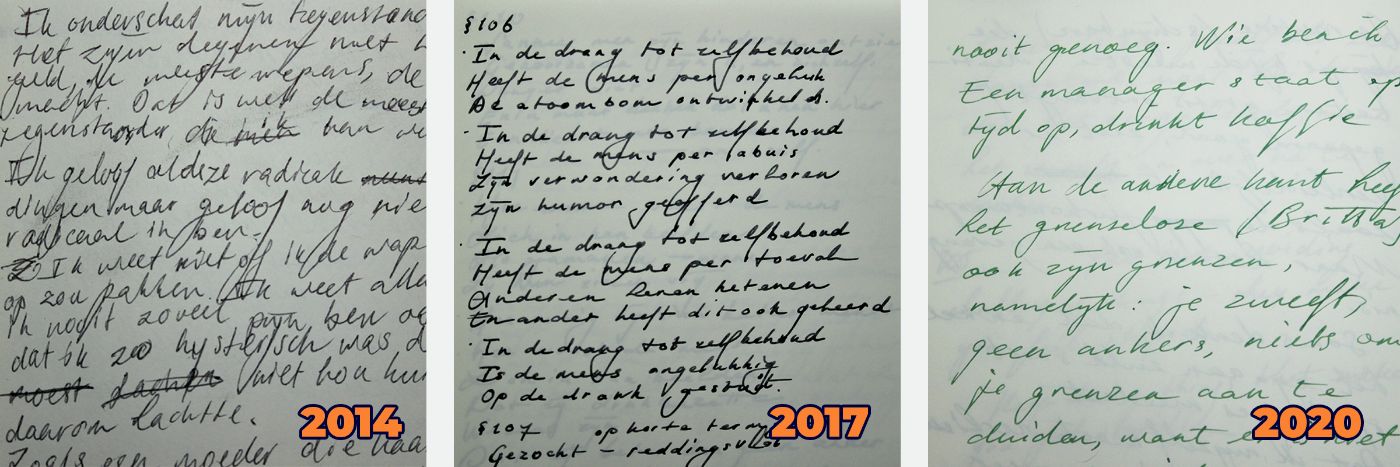 Ik onderschat mijn tegenstand
Het zijn degenen met h
geld, de meeste wapens, de
macht. Dat is wel de meest
tegenstander, die niet kan
Ik geloof al deze radicale
dingen maar geloof nog nie
radicaal ik ben.
Ik weet niet of ik de wap
op zou pakken. Ik weet alle
ik nooit zoveel pijn ben
dat ik zo hysterisch was d
moest lachen niet hou
daarom lachtte.
Zoals een moeder die haa
2014
§106
· In de drang tot zelfbehoud
Heeft de mens per ongeluk
De atoombom ontwikkeld.
· In de drang tot zelfbehoud
Heeft de mens per abuis
Zijn verwondering verloren
Zijn humor geofferd
· In de drang tot zelfbehoud
Heeft de mens per toeval
Anderen leren ketenen
En ander heeft dit ook geleerd
· In de drang tot zelfbehoud
Is de mens ongelukkig
Op de drank gestuit.
§107 op korte termijn
Gezocht – reddingsvlot
2017
nooit genoeg. Wie ben ik
Een manager staat op
tijd op, drinkt koffie
Aan de andere kant heef
het grenseloze (Brittba
ook zijn grenzen,
namelijk: je zweeft,
geen ankers, niets om
je grenzen aan te
duiden, want
2020